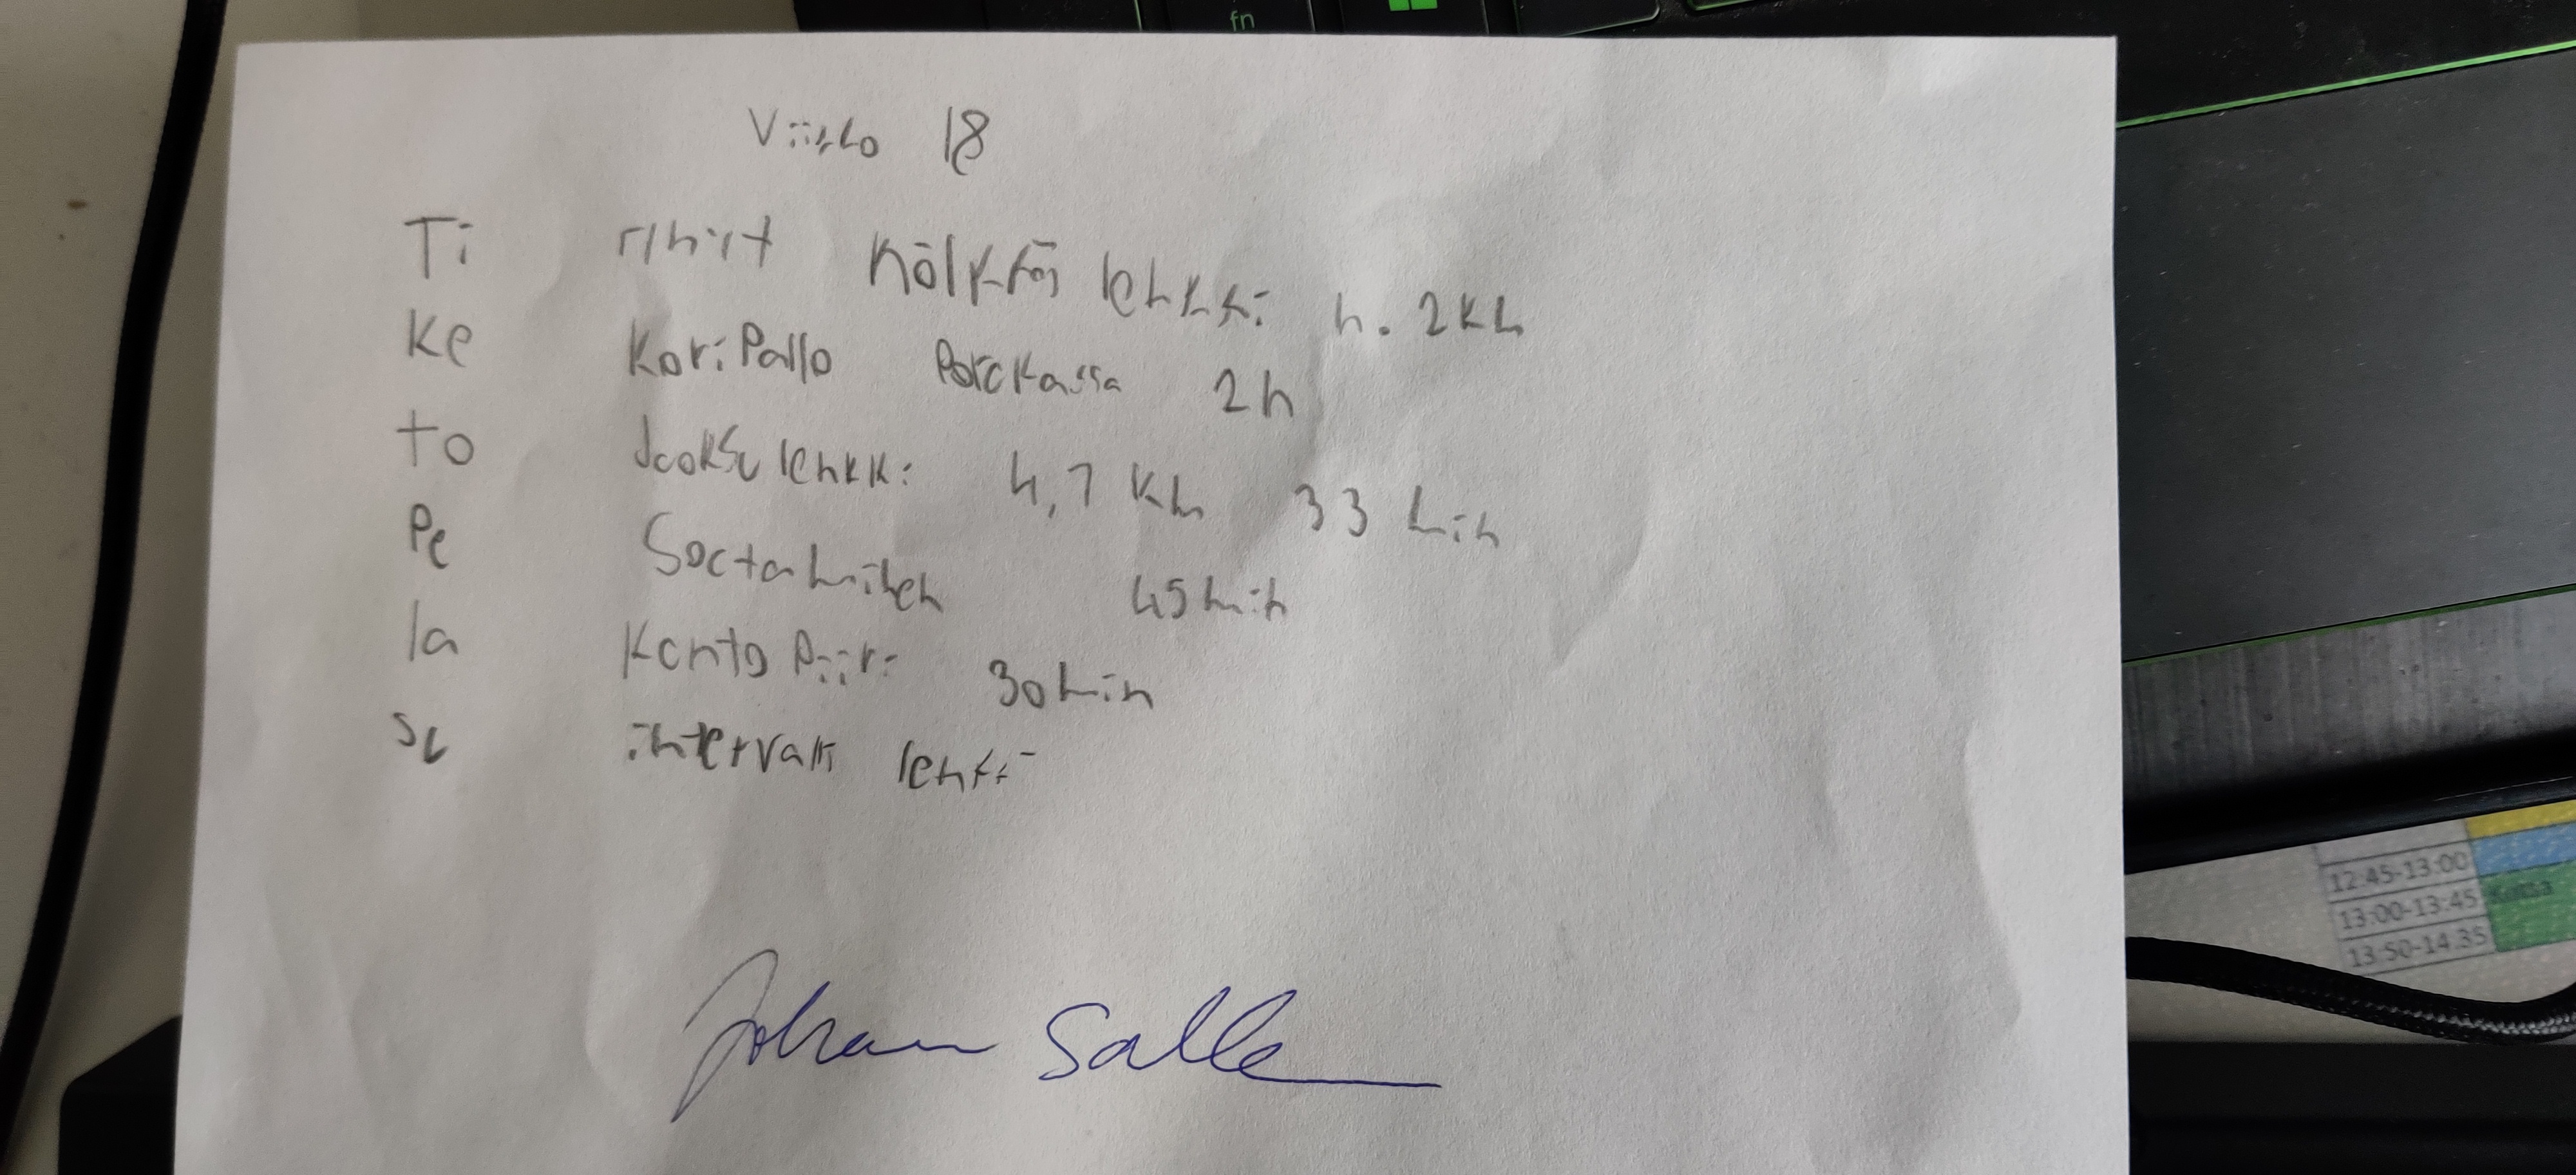 fn
Viikko 18
Ti rihit Kölkkä lenkki n. 2Km
Ke Koripallo Porukassa 2h
to Juoksulenkki 4,7 Km 33 min
Pe Soutaminen 45min
la Kunto Piiri 30min
su intervalli lenkki
Johan Salle
12:45-13:00
13:00-13:45
13:50-14:35